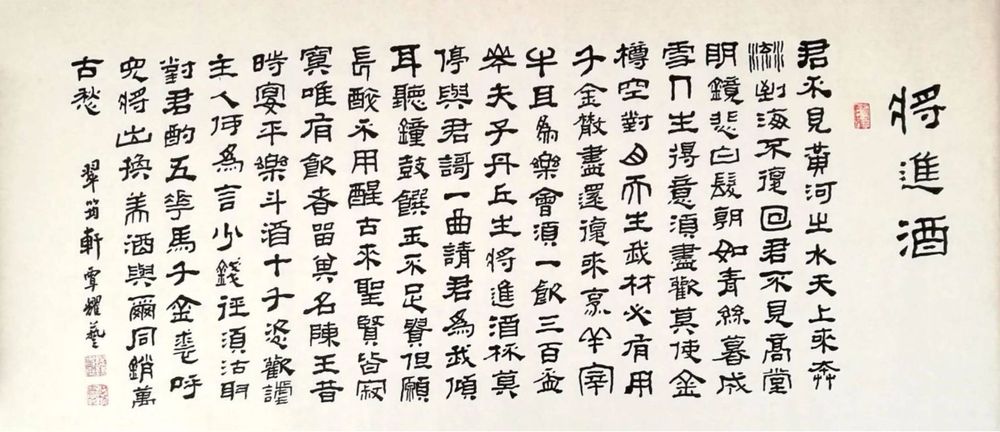 將進酒
君不見黃河之水天上來奔
流到海不復回君不見高堂
明鏡悲白髮朝如青絲暮成
雪人生得意須盡歡莫使金
樽空對月天生我材必有用
千金散盡還復來烹羊宰
牛且為樂會須一飲三百盃
岑夫子丹丘生將進酒杯莫
停與君謌一曲請君為我傾
耳聽鐘鼓饌玉不足貴但願
長醉不用醒古來聖賢皆寂
寞唯有飲者留其名陳王昔
時宴平樂斗酒十千恣歡謔
主人何為言少錢徑須沽取
對君酌五花馬千金裘呼
兒將出換美酒與爾同銷萬
古愁
翠筠軒覃耀藝